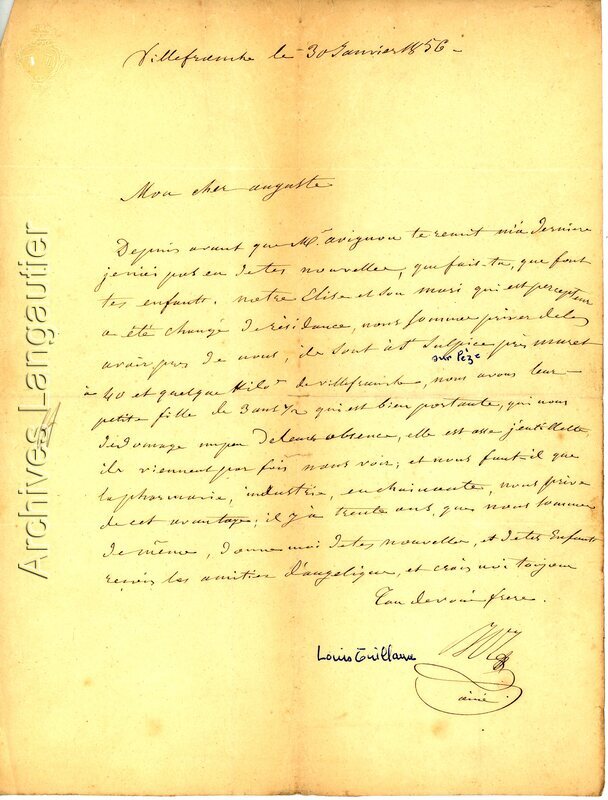 Villefranche le 30 Janvier 1856 -
Mon cher auguste
Depuis avant que Mr avignon te remit m'a derniere
je n'ai pas eu de tes nouvelles, que fais-tu, que font
tes enfants. notre Elise et son mari qui est percepteur
a été changé de résidance, nous somme priver de les
avoir pres de nous, ils sont à St Sulpice près muret
sur Lèze
à 40 et quelque Kilos de villefranche, nous avons leur
petite fille de 3 ans 1/2 qui est bien portante, qui nous
dédomage un peu de leur absence, elle est asse j'entillette
ils viennent par fois nous voir; et nous faut-il que
la pharmacie, industrie, enchainante, nous prive
de cet avantage; il y'a trente ans, que nous sommes
de même, donne moi de tes nouvelles, et de tes Enfants
reçois les amitier d'angelique, et crois moi toujour
Ton devoué frere.
Louis Guillaume
ainé
Archives Langautier